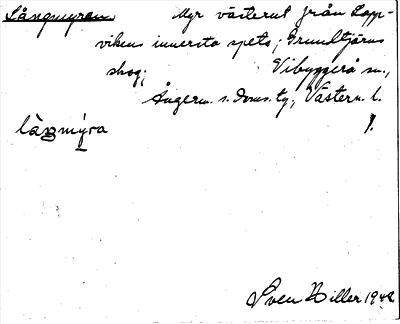 Långmyren Myr västerut från Lapp-
vikens innersta spets; Grundtjärns
skog; Vibyggerå sn,
Ångerm. s. doms. tg, Västern. l.
là̀ŋmýra
Sven Hiller 1942